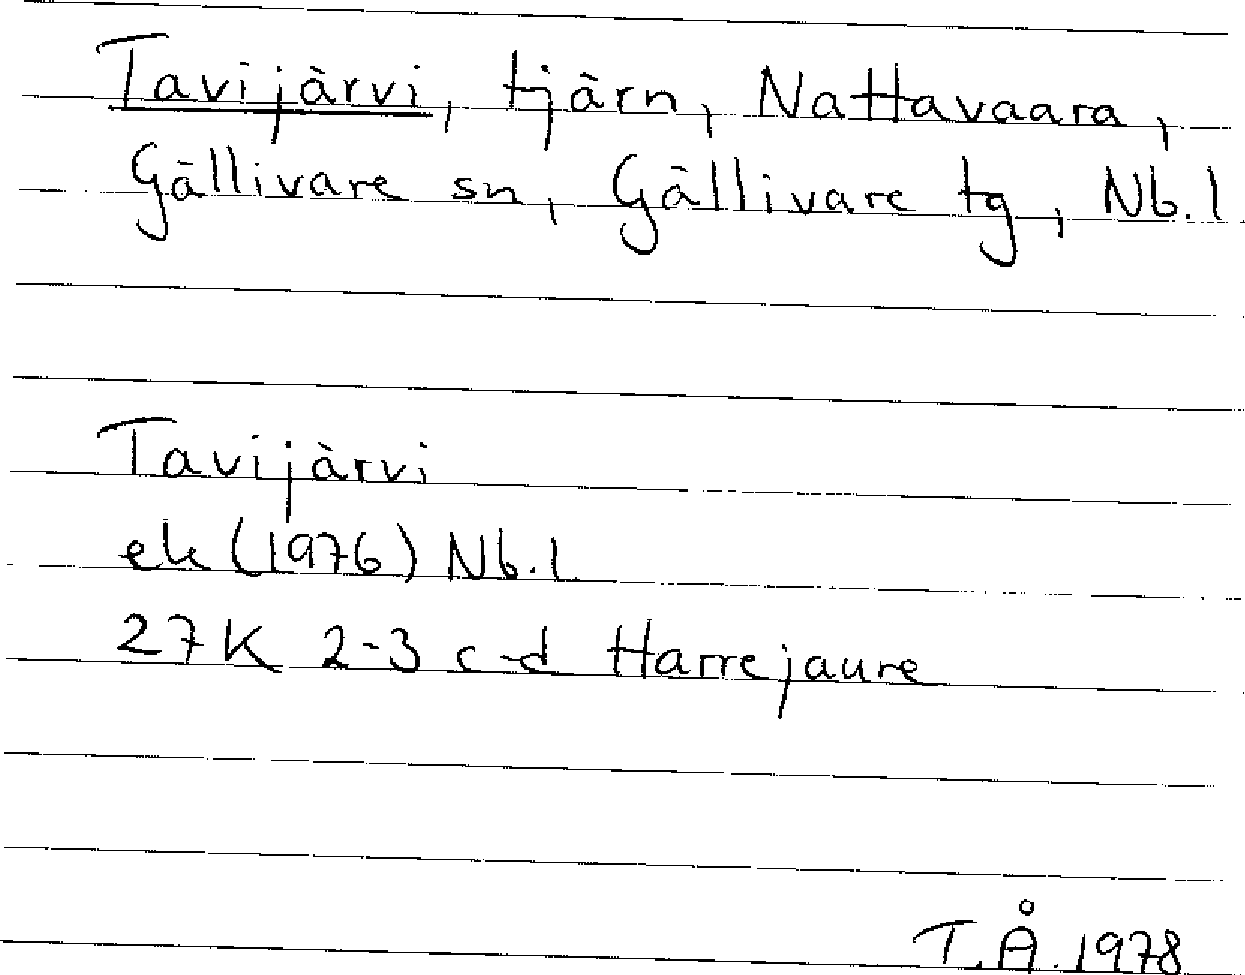 Tavijärvi, tjärn, Nattavaara,
Gällivare sn, Gällivare tg, Nb. l
Tavijärvi
ek (1976) Nb. l
27K 2-3 c-d Harrejaure
T.Å. 1978